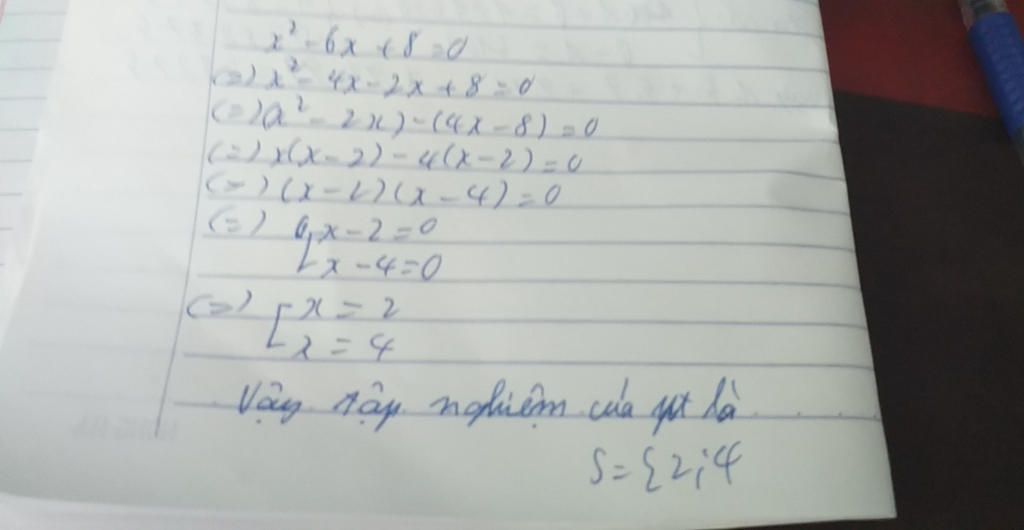 x² - 6x + 8 = 0
(=) x² - 4x - 2x + 8 = 0
(=) (x² - 2x) - (4x - 8) = 0
(=) x(x - 2) - 4(x - 2) = 0
(=) (x - 2)(x - 4) = 0
(=) [x - 2 = 0
x - 4 = 0
(=) [x = 2
x = 4
Vậy tập nghiệm của pt là
S = {2; 4